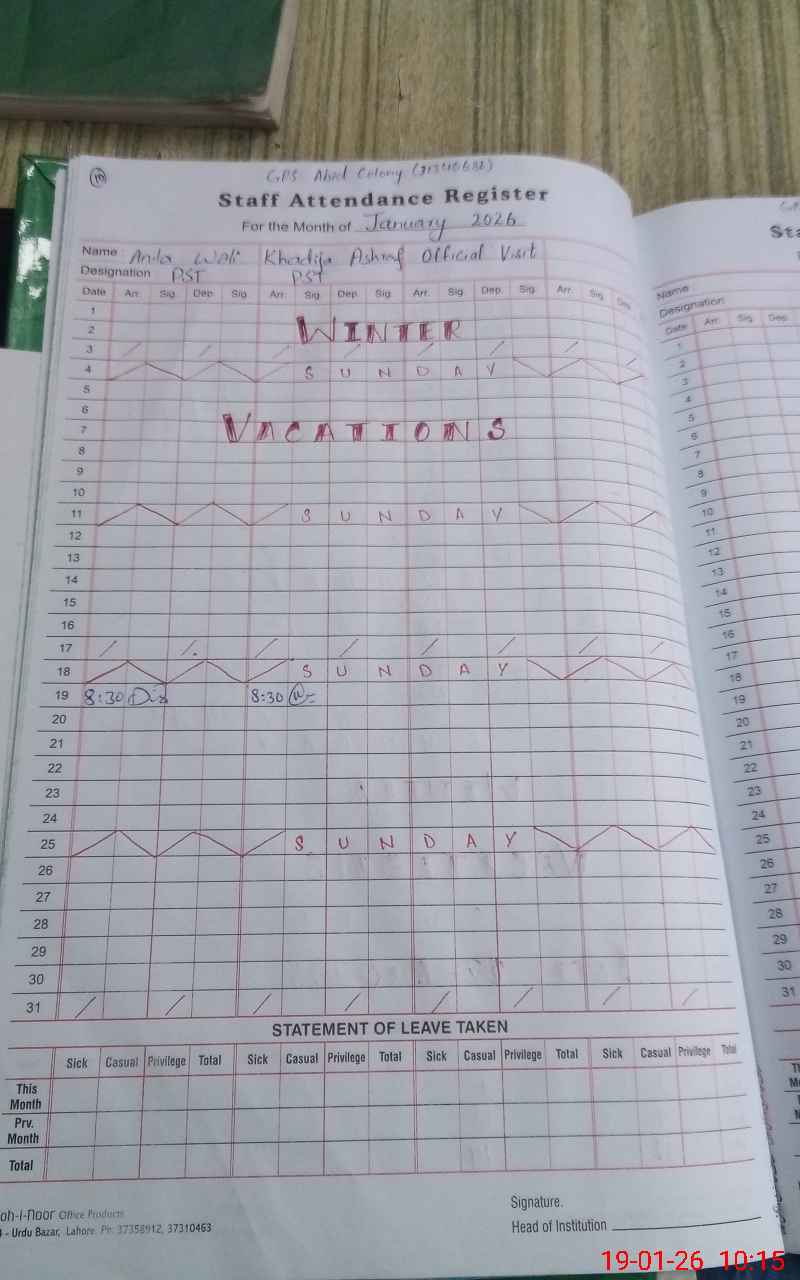 10
GPS Abid Colony
Staff Attendance Register
For the Month of January 2026
Name : Anila Wali Khadija Ashraf Official Visit
Designation PST PST
Date Arr. Sig. Dep. Sig. Arr. Sig. Dep. Sig. Arr. Sig. Dep. Sig. Arr. Sig. Dep.
1
2 WINTER
3
4 SUNDAY
5
6
7 VACATIONS
8
9
10
11 SUNDAY
12
13
14
15
16
17
18 SUNDAY
19 8:30 8:30
20
21
22
23
24
25 SUNDAY
26
27
28
29
30
31
STATEMENT OF LEAVE TAKEN
Sick Casual Privilege Total Sick Casual Privilege Total Sick Casual Privilege Total Sick Casual Privilege Total
This Month
Prv. Month
Total
Office Products
Urdu Bazar, Lahore. Ph: 37358912, 37310463
Signature.
Head of Institution
Name
Designation
Date Arr. Sig. Dep.
1
2
3
4
5
6
7
8
9
10
11
12
13
14
15
16
17
18
19
20
21
22
23
24
25
26
27
28
29
30
31
19-01-26 10:15